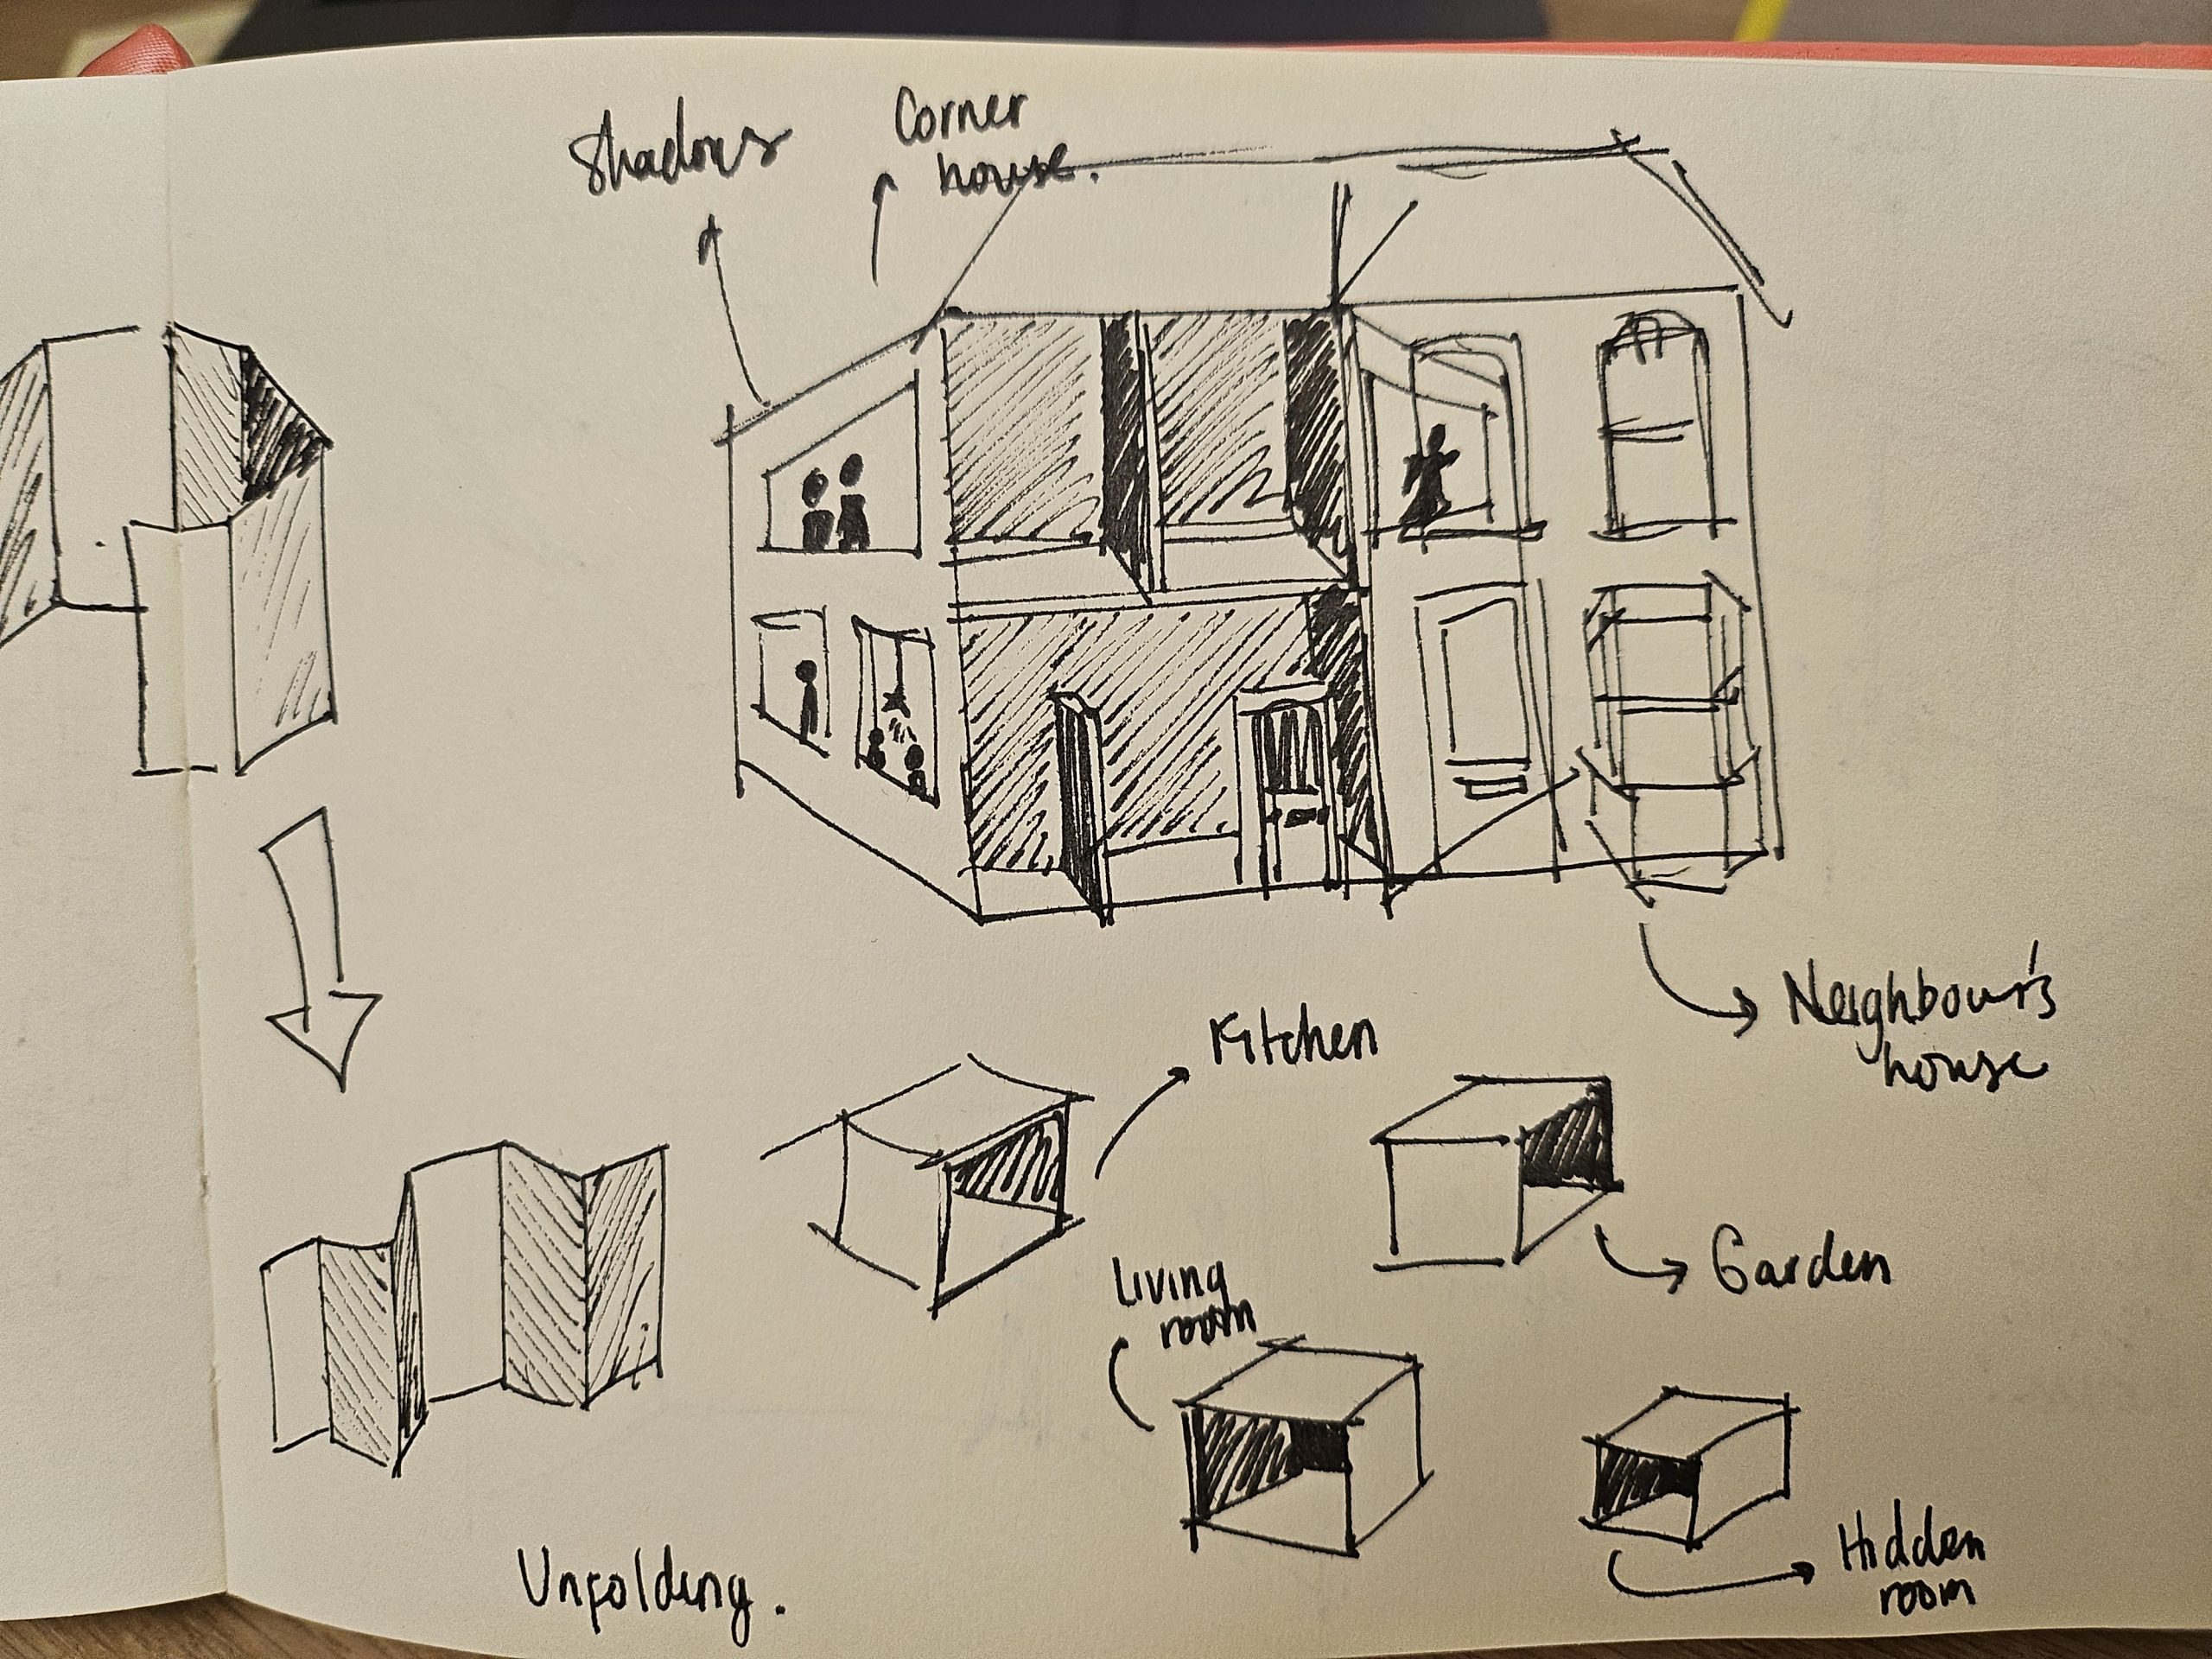 Shadows
Corner
house.
Neighbour's
house
Kitchen
Garden
Living
room
Hidden
room
Unfolding.